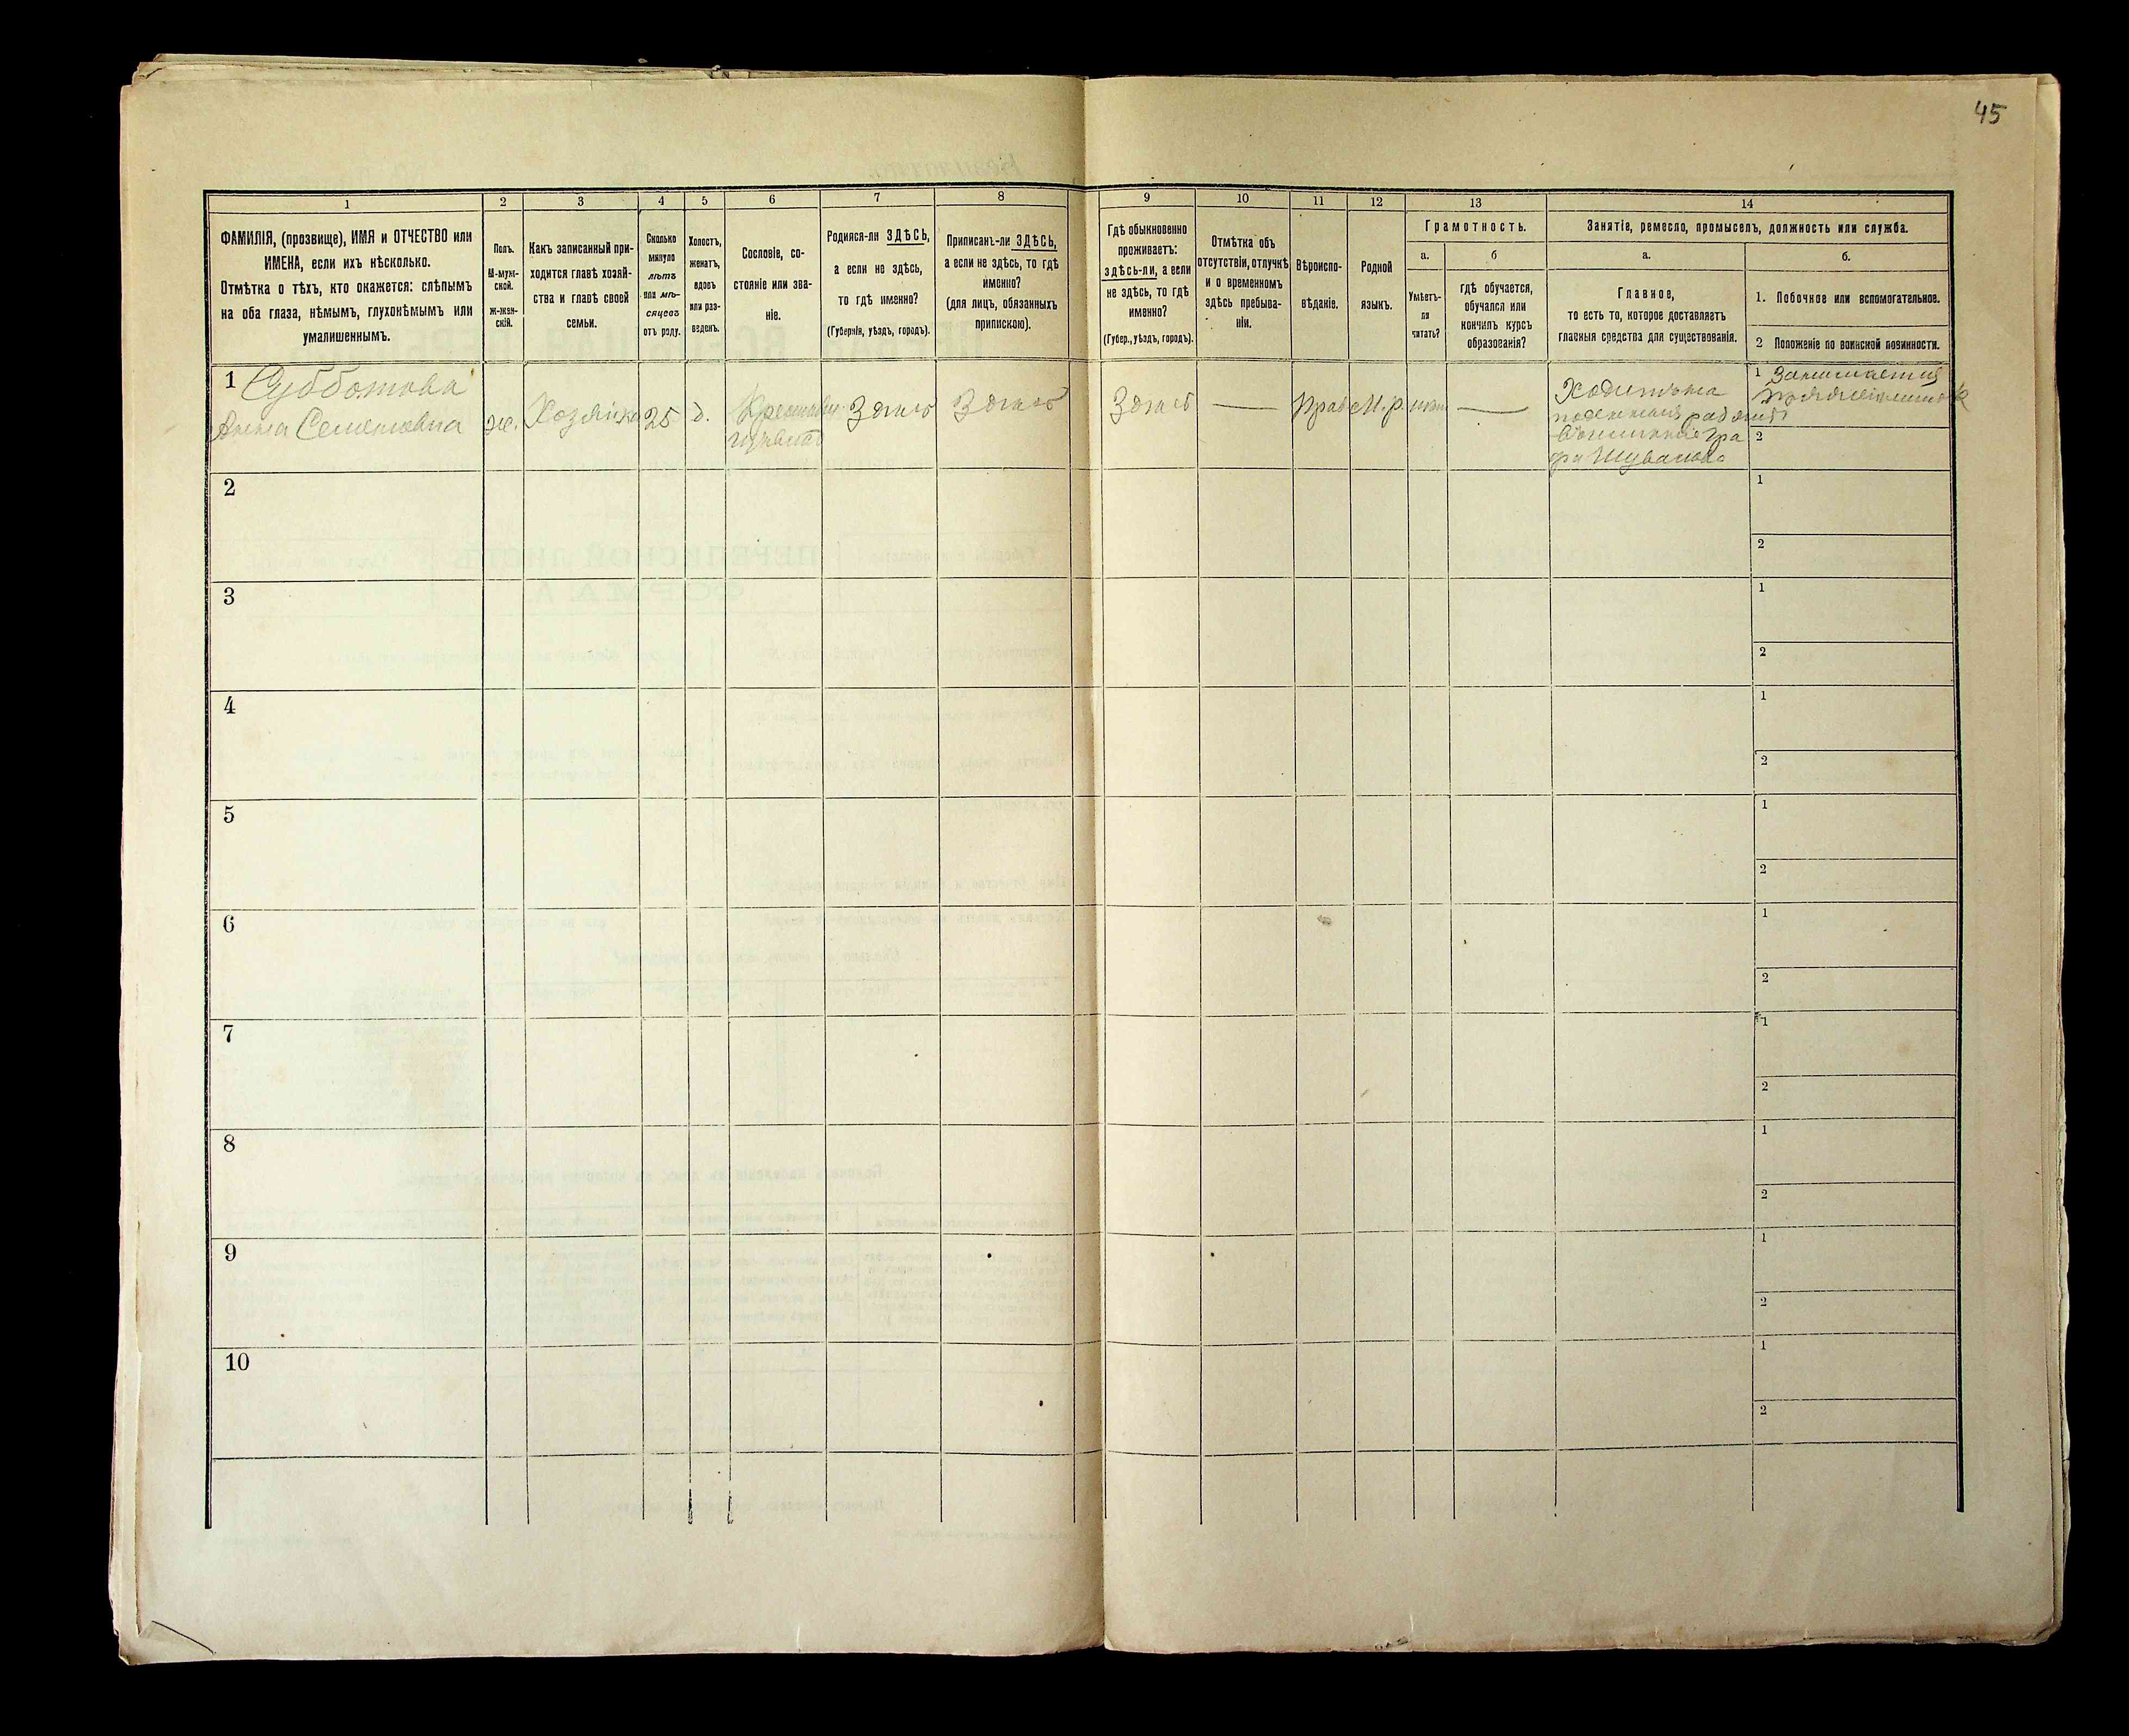 45
1
2
3
4
5
6
7
8
9
10
11
12
13
14
ФАМИЛІЯ, (прозвище), ИМЯ и ОТЧЕСТВО или
ИМЕНА, если ихъ нѣсколько.
Отмѣтка о тѣхъ, кто окажется: слѣпымъ
на оба глаза, нѣмымъ, глухонѣмымъ или
умалишеннымъ.
Полъ.
М-муж-
ской.
Ж-жен-
скій.
Какъ записанный при-
ходится главѣ хозяй-
ства и главѣ своей
семьи.
Сколько
минуло
лѣтъ
или мѣ-
сяцевъ
отъ роду.
Холостъ,
женатъ,
вдовъ
или раз-
веденъ.
Сословіе, со-
стояніе или зва-
ніе.
Родился-ли ЗДѢСЬ,
а если не здѣсь,
то гдѣ именно?
(Губернія, уѣздъ, городъ).
Приписанъ-ли ЗДѢСЬ,
а если не здѣсь, то гдѣ
именно?
(для лицъ, обязанныхъ
припискою).
Гдѣ обыкновенно
проживаетъ:
здѣсь-ли, а если
не здѣсь, то гдѣ
именно?
(Губер., уѣздъ, городъ).
Отмѣтка объ
отсутствіи, отлучкѣ
и о временномъ
здѣсь пребыва-
ніи.
Вѣроиспо-
вѣданіе.
Родной
языкъ.
Грамотность.
а.
Умѣетъ-
ли
читать?
б
гдѣ обучается,
обучался или
кончилъ курсъ
образованія?
Занятіе, ремесло, промыселъ, должность или служба.
а.
Главное,
то есть то, которое доставляетъ
главныя средства для существованія.
б.
1. Побочное или вспомогательное.
2 Положеніе по воинской повинности.
1 Субботова
Анна Семеновна
ж.
Хозяйка
25
д.
Здѣсь
Здѣсь
Здѣсь
—
Прав
М.р.
—
1 Занимается
2
2
1
2
3
1
2
4
1
2
5
1
2
6
1
2
7
1
2
8
1
2
9
1
2
10
1
2